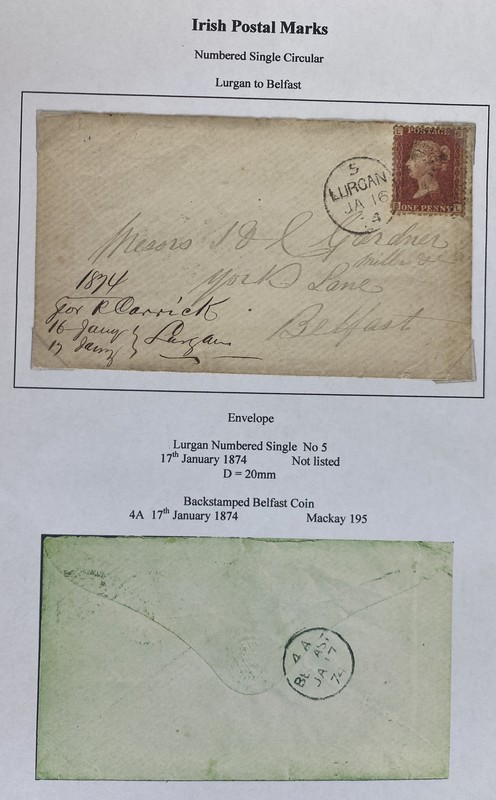 Irish Postal Marks
Numbered Single Circular
Lurgan to Belfast
POSTAGE
ONE PENNY
L
5
LURGAN
JA 16
4
Messrs J & L Gardner
York Lane
Belfast
1874
for R Carrick
16 Jany
17 Jany
Lurgan
Envelope
Lurgan Numbered Single No 5
17th January 1874 Not listed
D = 20mm
Backstamped Belfast Coin
4A 17th January 1874 Mackay 195
4 A
BE AST
JA 17
74